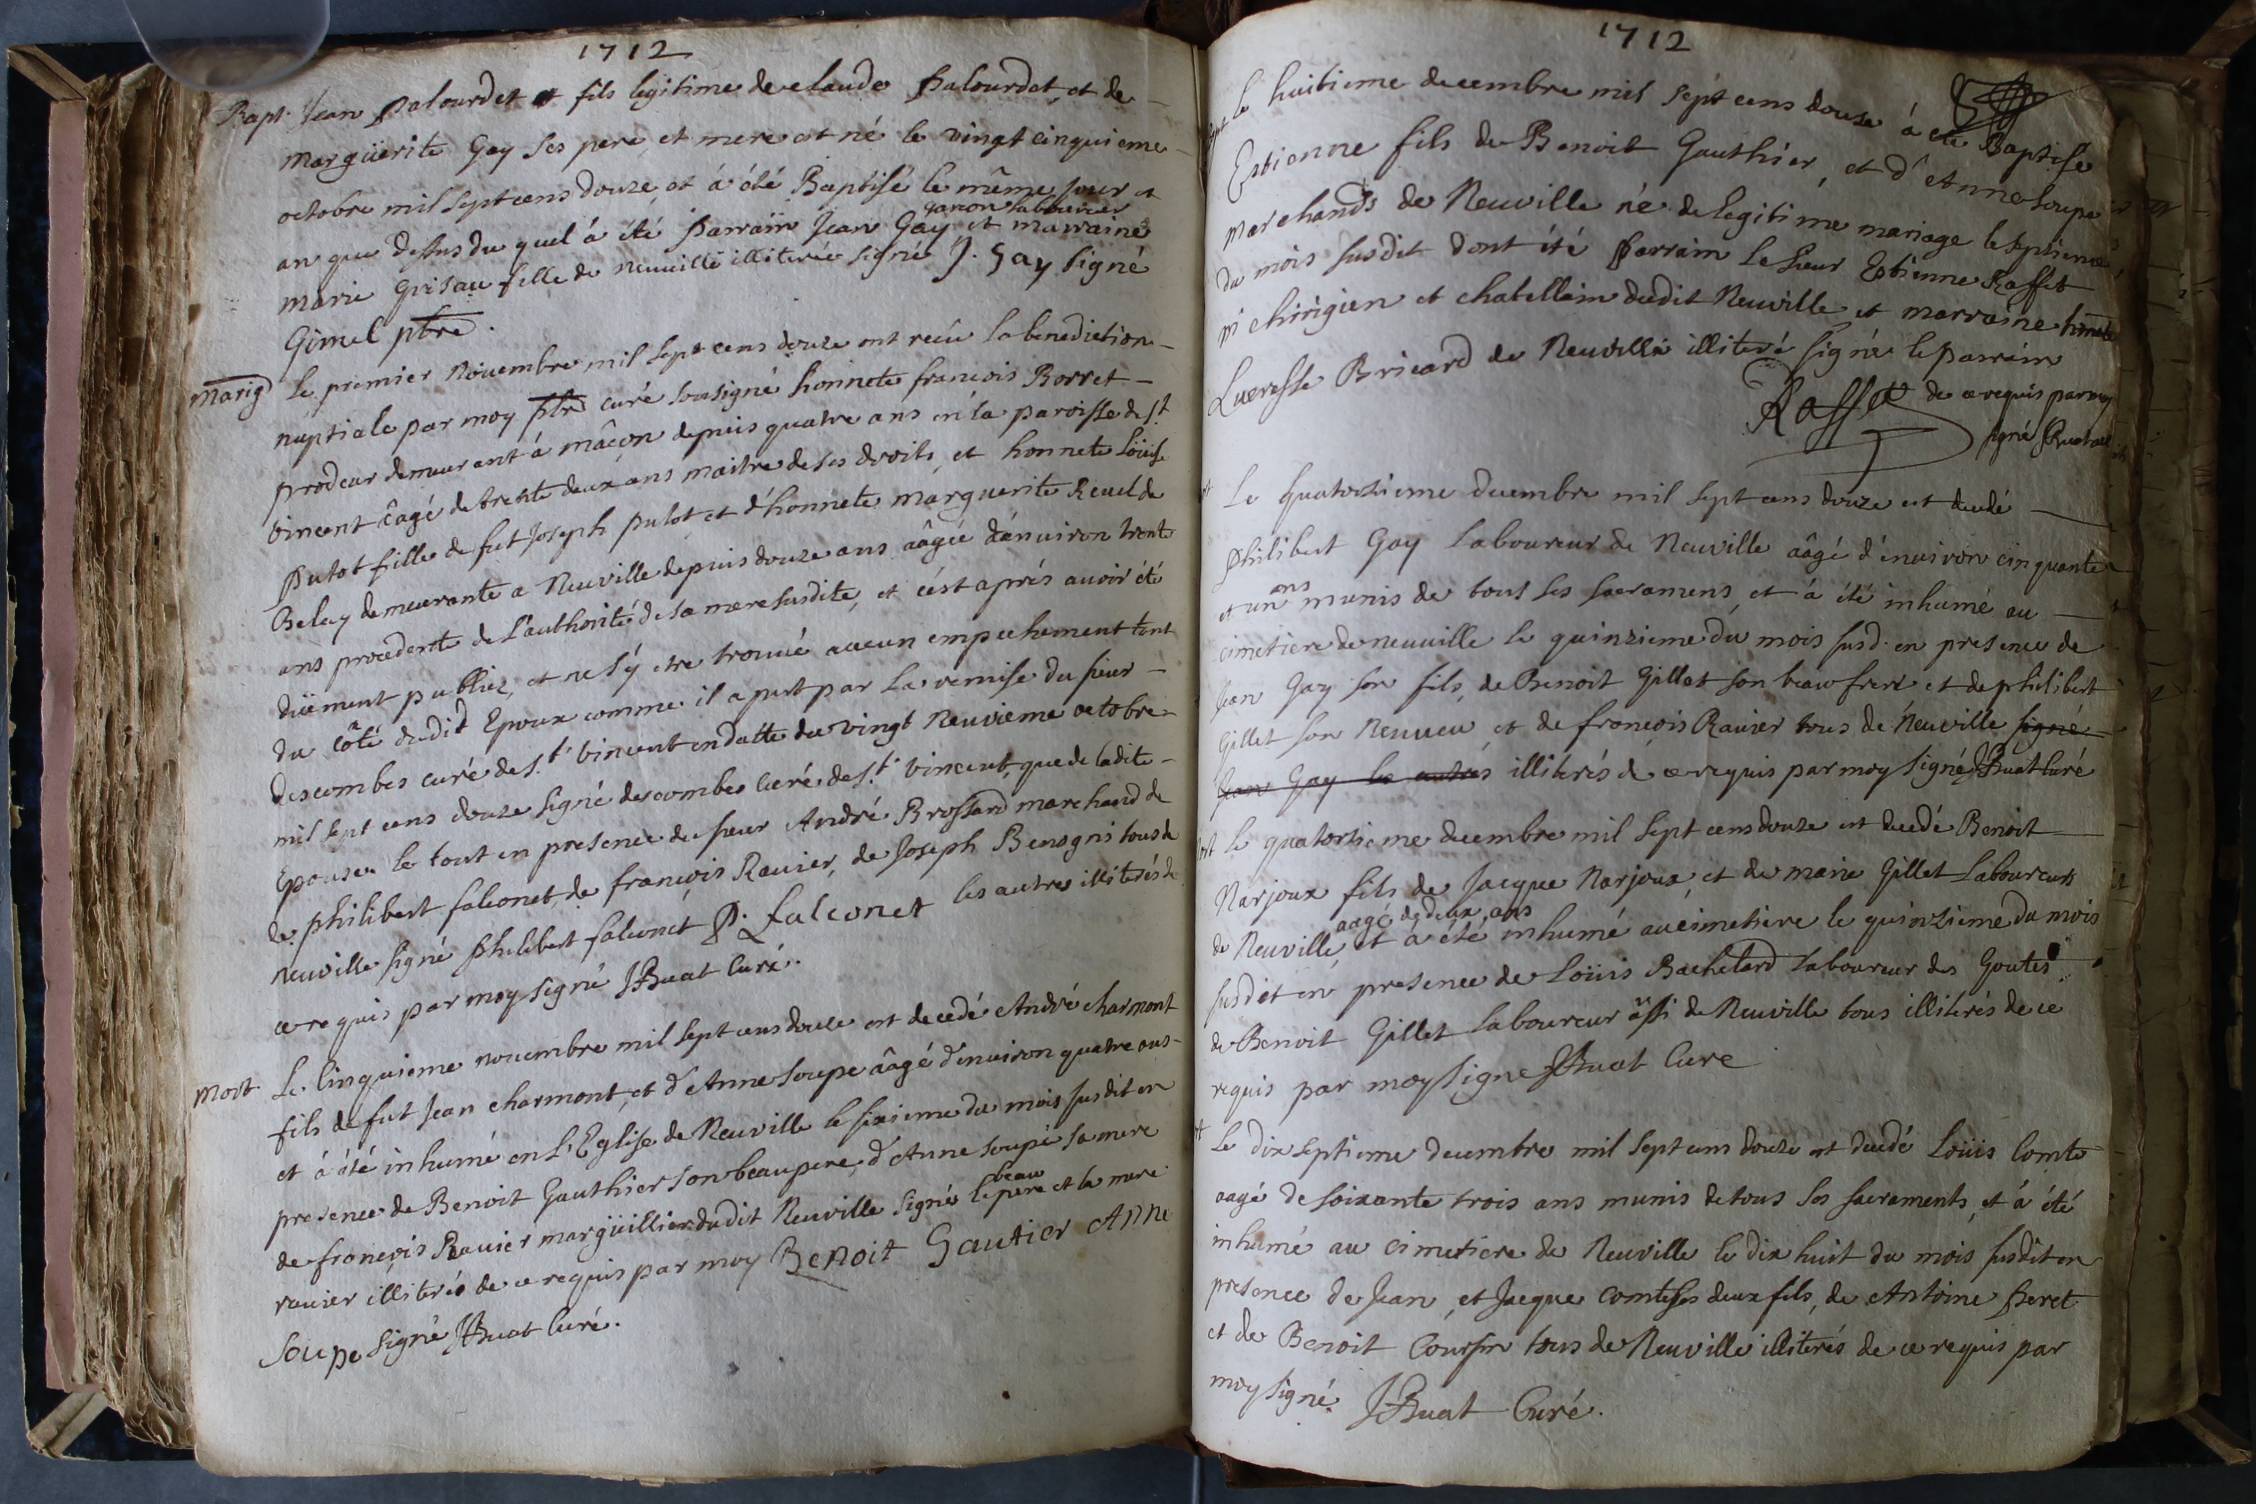 1712
Bapt. Jean Palourdet fils legitime de claude Palourdet, et de
margüerite Gay ses pere, et mere est né le vingt cinquieme
octobre mil sept cens douze, et à été Baptisé le même jour et
garcon laboureur
an que dessus du quel à été Parrain Jean Gay et marraine
marie grisau fille de neuville illiterée signé J. Gay signé
Gimel pbre.
Mariag Le premier Novembre mil sept cens douze ont recû la benediction
nuptiale par moy pbre curé sousigné honnete francois Borret
prodeur demeurant à mâcon depuis quatre ans en la paroisse de St
vincent âagé de trente deux ans maitre de ses droits, et honnete Loüise
Putot fille de fut Joseph putot, et d'honnete marguerite Revel de
Beley demeurante a Neuville depuis douze ans aâgée d'enuiron trente
ans procedente de l'authorité de sa mere susdite, et c'est aprés auoir été
düement publiez, et ne s'ÿ etre trouué aucun empechement tant
du côté dudit Epoux comme il apert par la remise du sieur
descombes curé de St vincent en datte du vingt neuvieme octobre
mil sept cens douze signé descombes curé de St vincent, que de ladite
Epouse, le tout en presence du sieur André Brossard marchand de
de philibert falconet, de françois Ravier, de Joseph Benogni tous de
neuville signé philibert falconet P. falconet les autres illiterés de
ce requis par moy signé JBuat Curé.
Mort Le Cinquieme nouembre mil sept cens douze est decedé André charmont
fils de fut Jean charmont, et d'Anne Soupe aâgé d'enuiron quatre ans
et à été inhumé en l'Eglise de Neuville le sixieme du mois susdit en
presence de Benoit Gauthier son beaupere, d'Anne Soupe sa mere
de françois Ravier margüillier dudit Neuville signé le beau pere et la mere
ravier illiterés de ce requis par moy Benoit Gautier Anne
Soupe signé JBuat Curé.
1712
Le huitieme decembre mil sept cens douze à été Baptisé
Estienne fils de Benoit Gauthier, et d'Anne Soupe
marchands de Neuville né de legitime mariage le septieme
du mois susdit dont été Parrain le sieur Estienne Raffet
chirigien et chatellain dudit Neuville et marraine honnete
Lucresse Bricard de Neuville illiteré signé le parrain
Raffet de ce requis par moy
signé JBuat curé
Le quatorsieme decembre mil sept cens douze est decedé
Philibert Gay Laboureur de Neuville aâgé d'enuiron cinquante
et un ans munis de tous ses sacramens, et à été inhumé au
cimetiere de neuville le quinzieme du mois susd. en presence de
Jean Gay son fils, de Benoit Gillet son beaufrere et de philibert
Gillet son neuueu, et de francois Ravier tous de Neuville signé
Jean Gay les autres illiterés de ce requis par moy signé JBuat Curé
Mort Le quatorsieme decembre mil sept cens douze est decedé Benoit
Narjoux fils de Jacque Narjoux, et de marie Gillet Laboureurs
aagé de deux ans
de Neuville, et à été inhumé au cimetiere le quinzieme du mois
susdit en presence de Loüis Bachelard Laboureur des Goutes
de Benoit Gillet laboureur aussi de Neuville tous illiterés de ce
requis par moy signe JBuat Cure
Le dix septieme decembre mil sept cens douze est decedé Loüis Comte
aagé de soixante trois ans munis de tous ses sacrements, et à été
inhumé au cimetiere de Neuville le dix huit du mois susdit en
presence de Jean, et Jacque comte ses deux fils, de Antoine Peret
et de Benoit Coursin tous de Neuville illiterés de ce requis par
moy signé JBuat Curé.